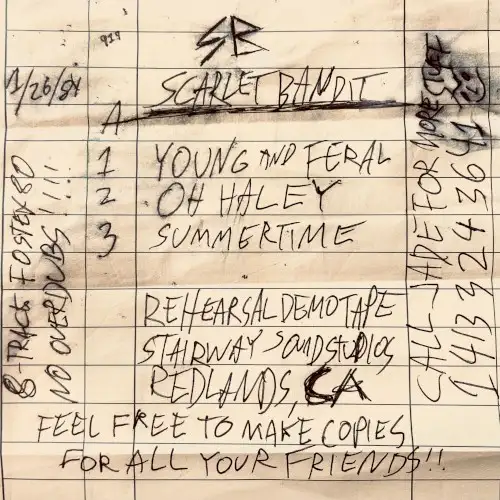 SB
919
1/26/84
SCARLET BANDIT
A
1 YOUNG AND FERAL
2 OH HALEY
3 SUMMERTIME
REHEARSAL DEMO TAPE
STAIRWAY SOUND STUDIOS
REDLANDS, CA
FEEL FREE TO MAKE COPIES
FOR ALL YOUR FRIENDS!!
8-TRACK FOSTEX 80
NO OVERDUBS!!!!
CALL JADE FOR MORE
1 413 324 364